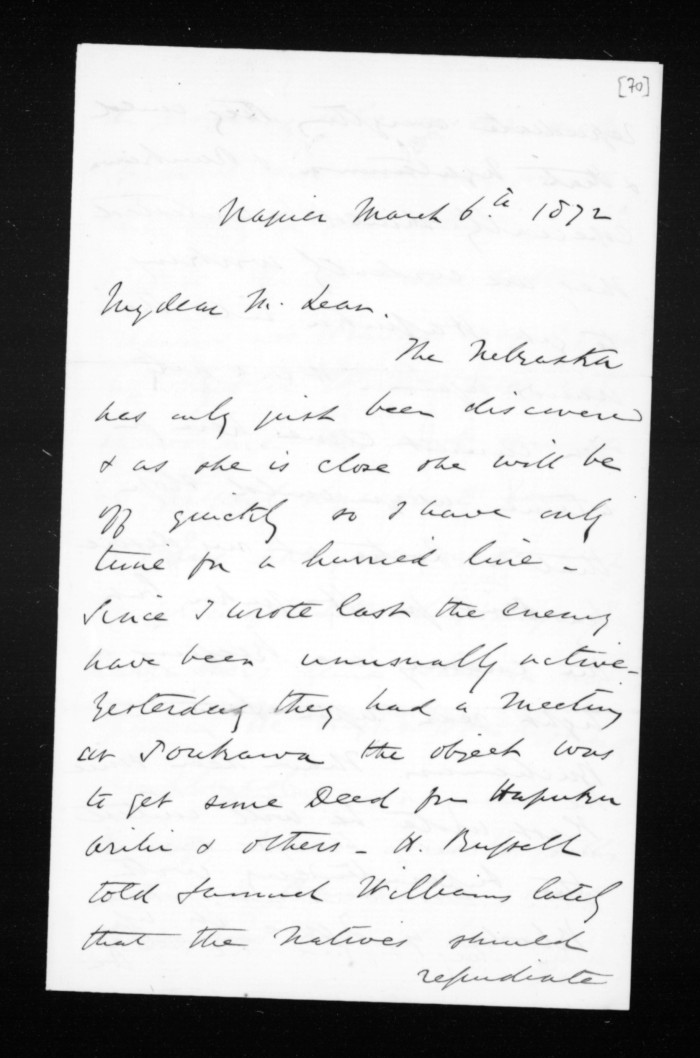 [70]
Napier March 6th 1872
My dear McLean.
The Nebraska
has only just been discovered
& as she is close she will be
off quickly so I have only
time for a hurried line -
Since I wrote last the enemy
have been unusually active -
Yesterday they had a meeting
at the object was
to get some Deed for Hapuku
& others - H. Russell
told Samuel Williams lately
that the Natives should
repudiate